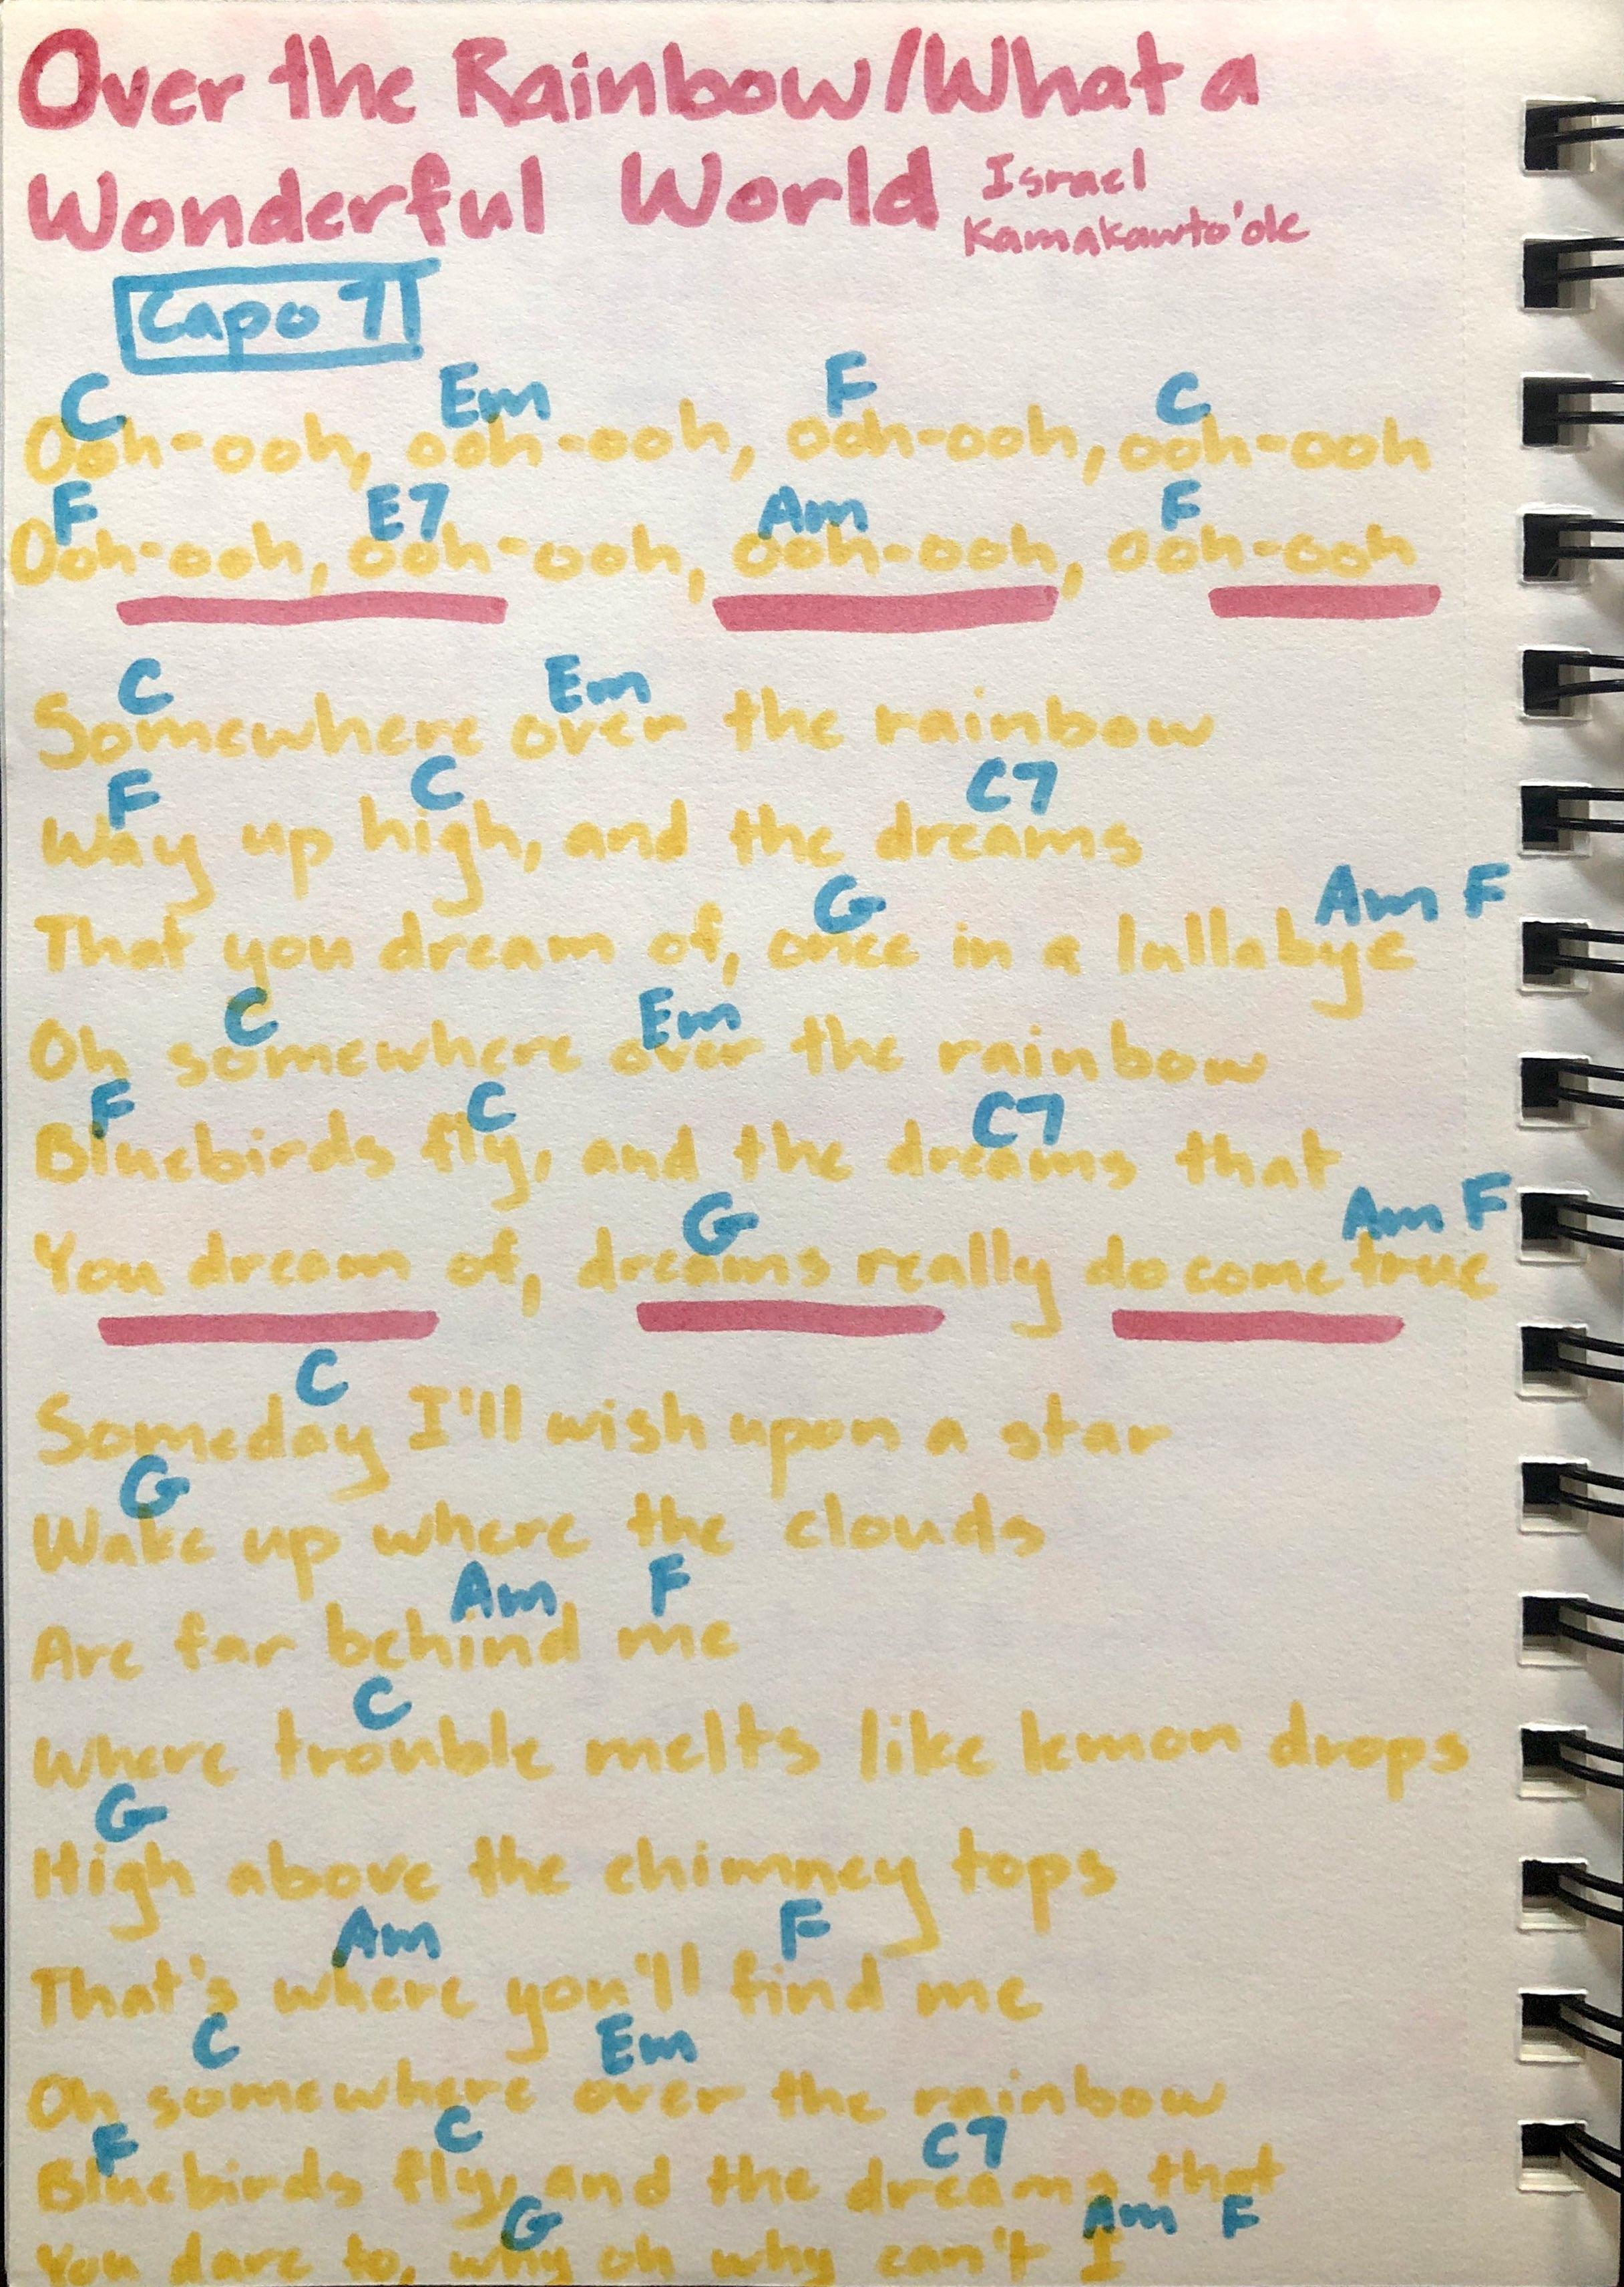 Over the Rainbow/What a
Wonderful World Israel
Kamakawto'ole
Capo 7
C Em F C
Ooh-ooh, ooh-ooh, ooh-ooh, ooh-ooh
F E7 Am F
Ooh-ooh, ooh-ooh, ooh-ooh, ooh-ooh
C Em
Somewhere over the rainbow
F C C7
Way up high, and the dreams
G Am F
That you dream of, once in a lullabye
C Em
Oh somewhere over the rainbow
F C C7
Bluebirds fly, and the dreams that
G Am F
You dream of, dreams really do come true
C
Someday I'll wish upon a star
G
Wake up where the clouds
Am F
Are far behind me
C
Where trouble melts like lemon drops
G
High above the chimney tops
Am F
That's where you'll find me
C Em
Oh somewhere over the rainbow
F C C7
Bluebirds fly, and the dreams that
G Am F
You dare to, why oh why can't I